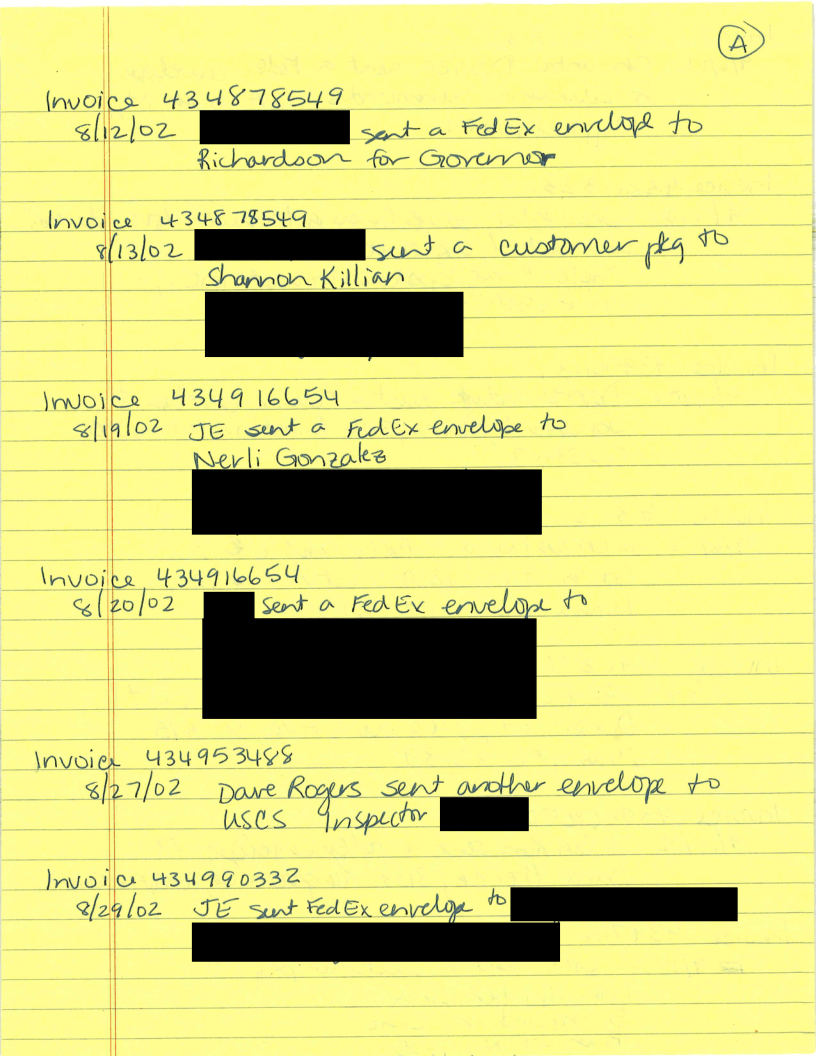 A
Invoice 434878549
8/12/02 sent a FedEx envelope to
Richardson for Governor
Invoice 434878549
8/13/02 sent a customer pkg to
Shannon Killian
Invoice 434916654
8/19/02 JE sent a FedEx envelope to
Nerli Gonzalez
Invoice 434916654
8/20/02 sent a FedEx envelope to
Invoice 434953488
8/27/02 Dave Rogers sent another envelope to
USCS Inspector
Invoice 434990332
8/29/02 JE sent FedEx envelope to